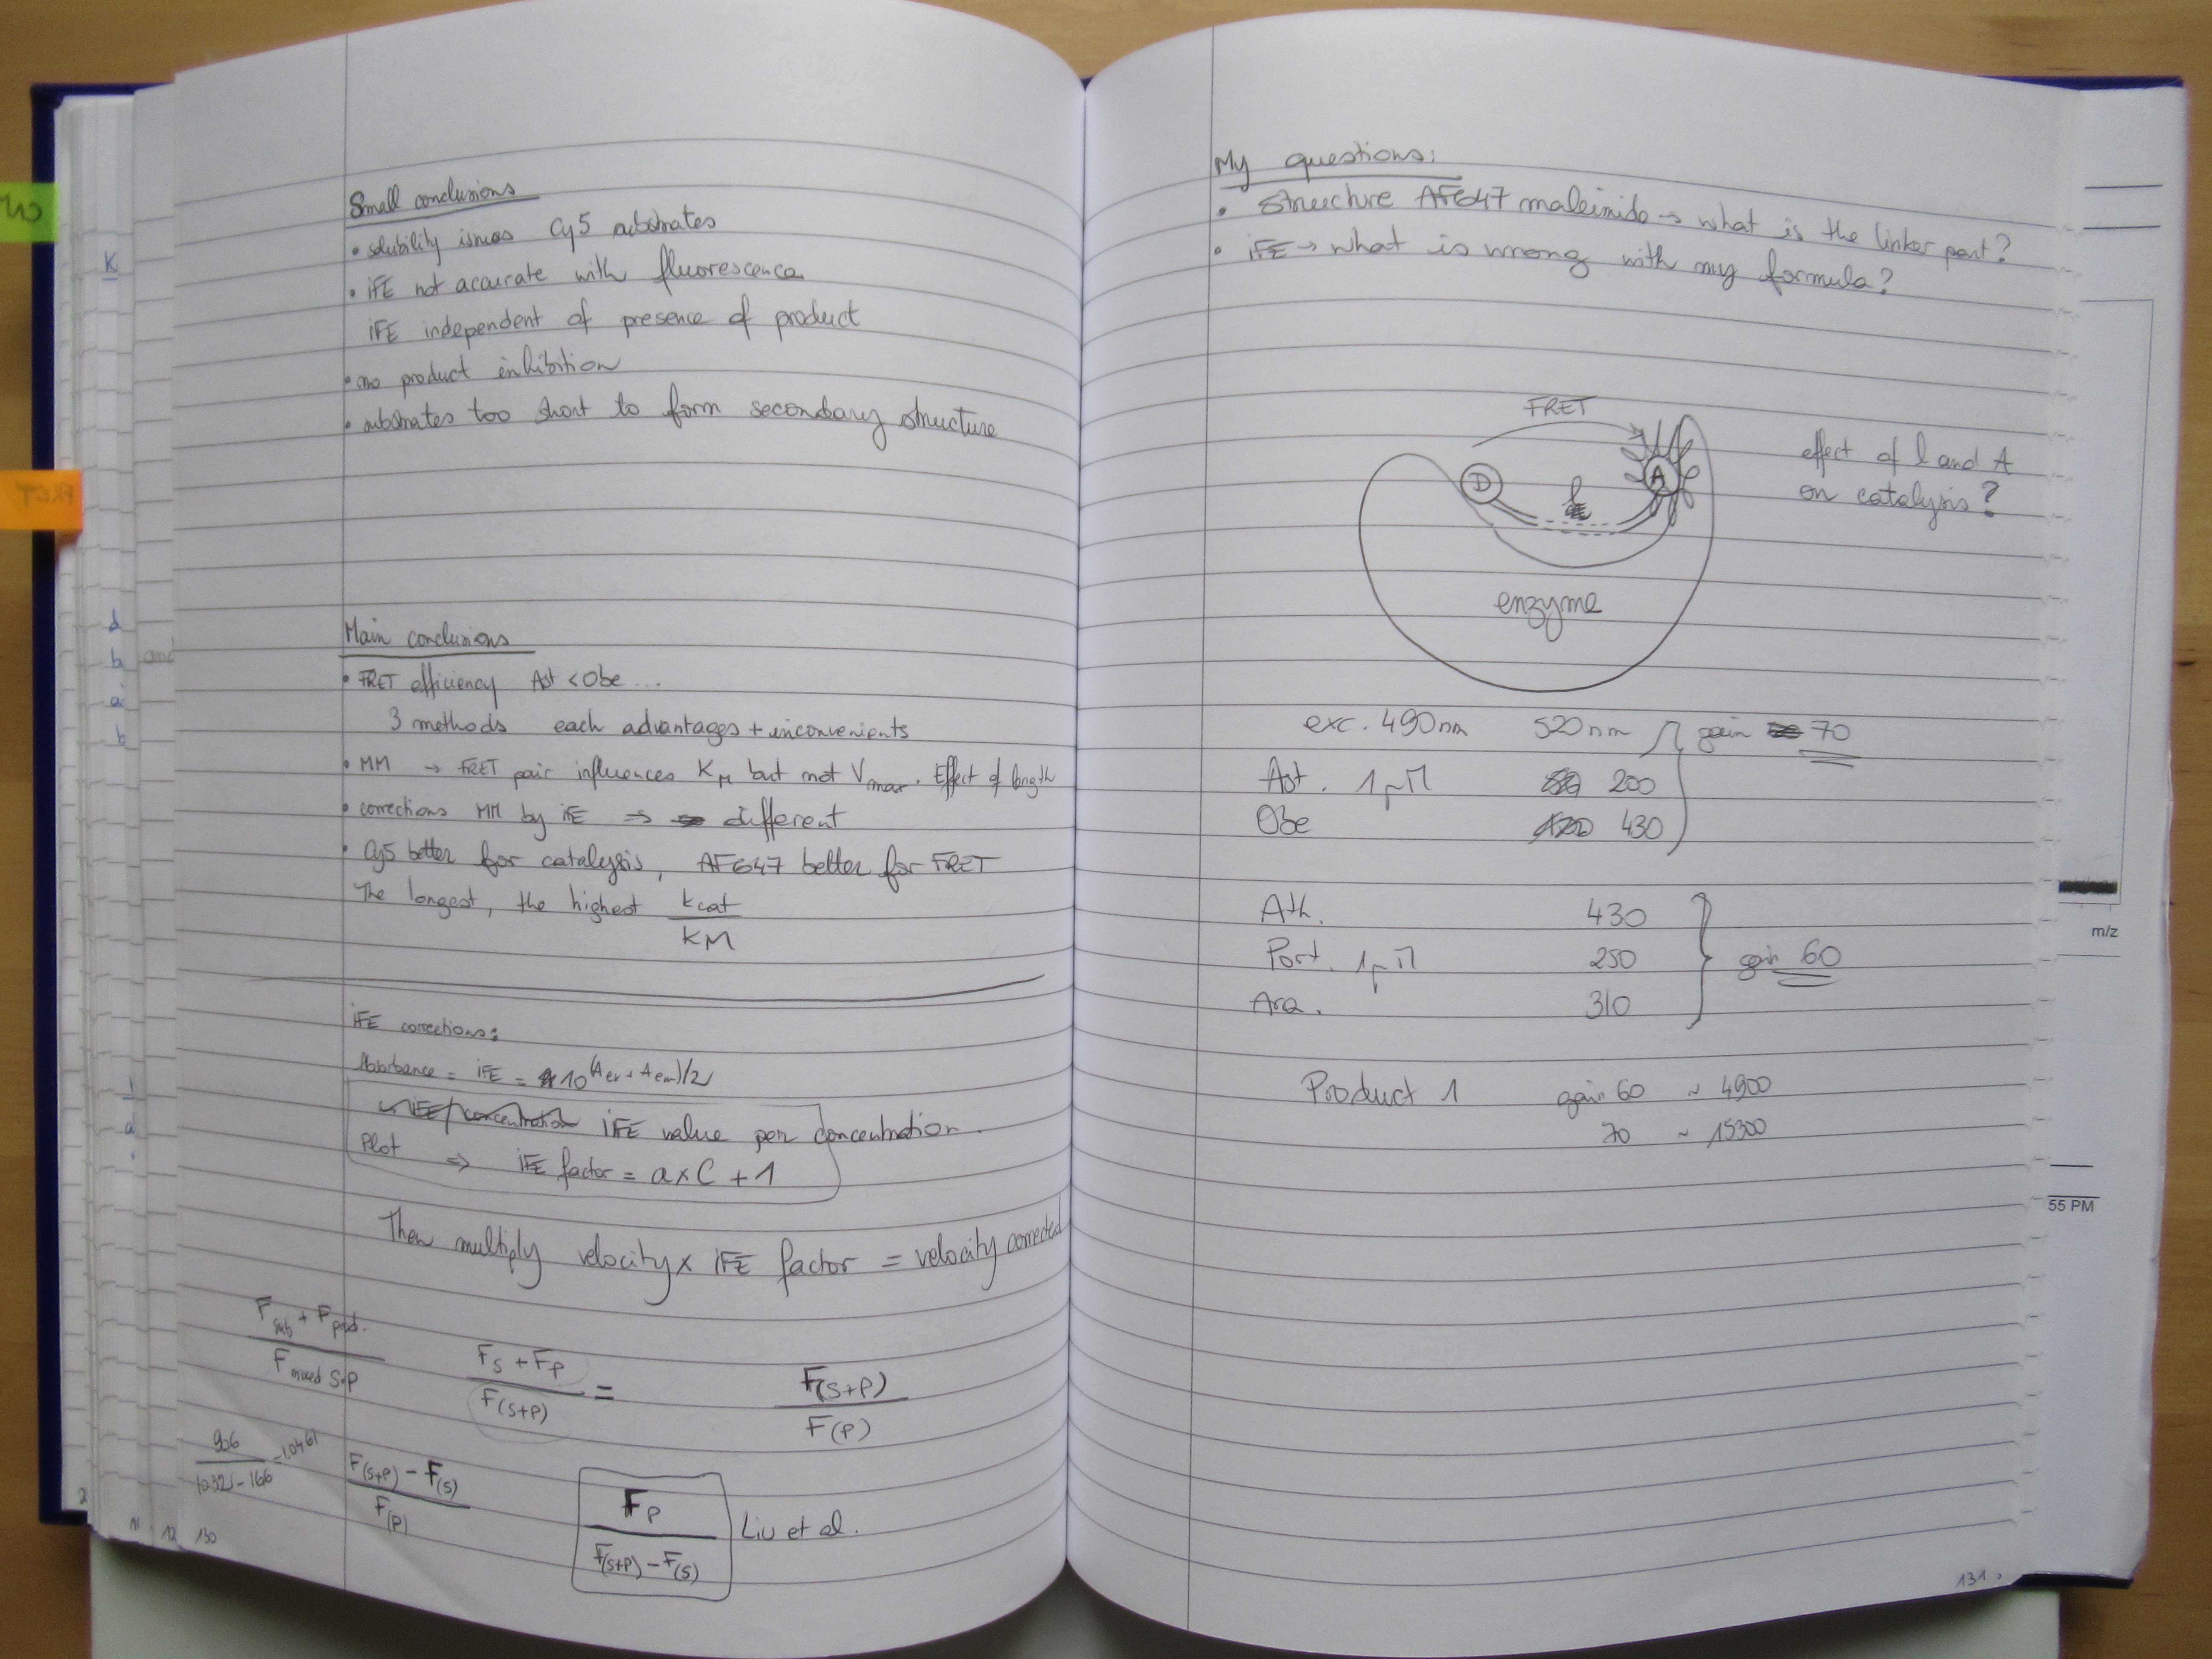 Small conclusions
• solubility issues Cy5 substrates
• iFE not accurate with fluorescence
iFE independent of presence of product
• no product inhibition
• substrates too short to form secondary structure
Main conclusions
• FRET efficiency Ast < Obe ...
3 methods each advantages + inconvenients
• MM → FRET pair influences KM but not Vmax. Effect of length
• corrections MM by iFE ⇒ different
• Cy5 better for catalysis, AF647 better for FRET
The longest, the highest kcat
KM
iFE corrections:
Absorbance = iFE = 10^(Aex + Aem)/2
iFE value per concentration.
Plot ⇒ iFE factor = a x C + 1
Then multiply velocity x iFE factor = velocity corrected
Fsub + Fprod.
Fmixed S+P
FS + FP
F(S+P)
=
F(S+P)
F(P)
906
F(S+P) - F(S)
F(P)
FP
F(S+P) - F(S)
Liu et al.
130
My questions:
• Structure AF647 maleimide → what is the linker part?
• iFE → what is wrong with my formula?
FRET
D
A
l
effect of l and A
on catalysis?
enzyme
exc. 490nm 520nm gain 70
Ast. 1µM 200
Obe 430
Ath. 430
Port. 1µM 250 gain 60
Ara. 310
Product 1 gain 60 ~ 4900
70 ~ 15300
131
FRET
K
d
b
and
a
b
m/z
55 PM